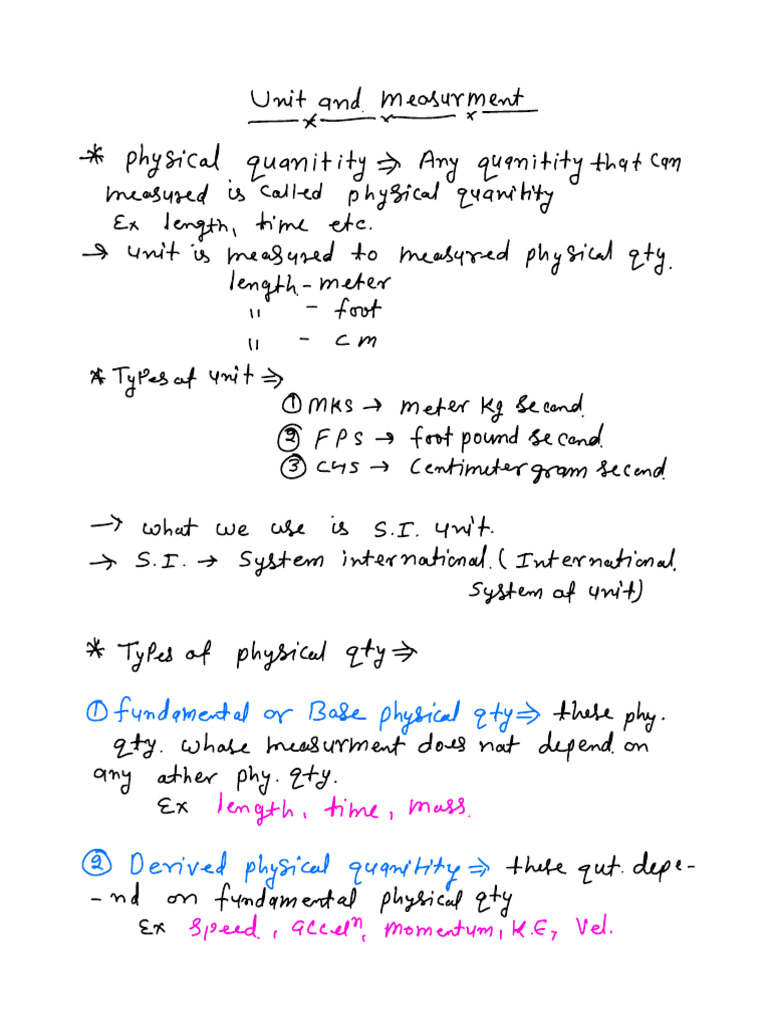 Unit and measurment
* Physical quanitity ⇒ Any quanitity that can
measured is called physical quanitity
Ex length, time etc.
→ unit is measured to measured physical qty.
length - meter
" - foot
" - cm
* Types of unit ⇒
① MKS → meter kg second.
② FPS → foot pound second.
③ CGS → Centimeter gram second.
→ what we use is S.I. unit.
→ S.I. → System international. (International.
System of unit)
* Types of physical qty ⇒
① fundamental or Base physical qty ⇒ these phy.
qty. whose measurment does not depend on
any other phy. qty.
Ex length, time, mass.
② Derived physical quanitity ⇒ these qut. depe-
-nd on fundamental physical qty
Ex speed, accelⁿ, momentum, K.E, Vel.